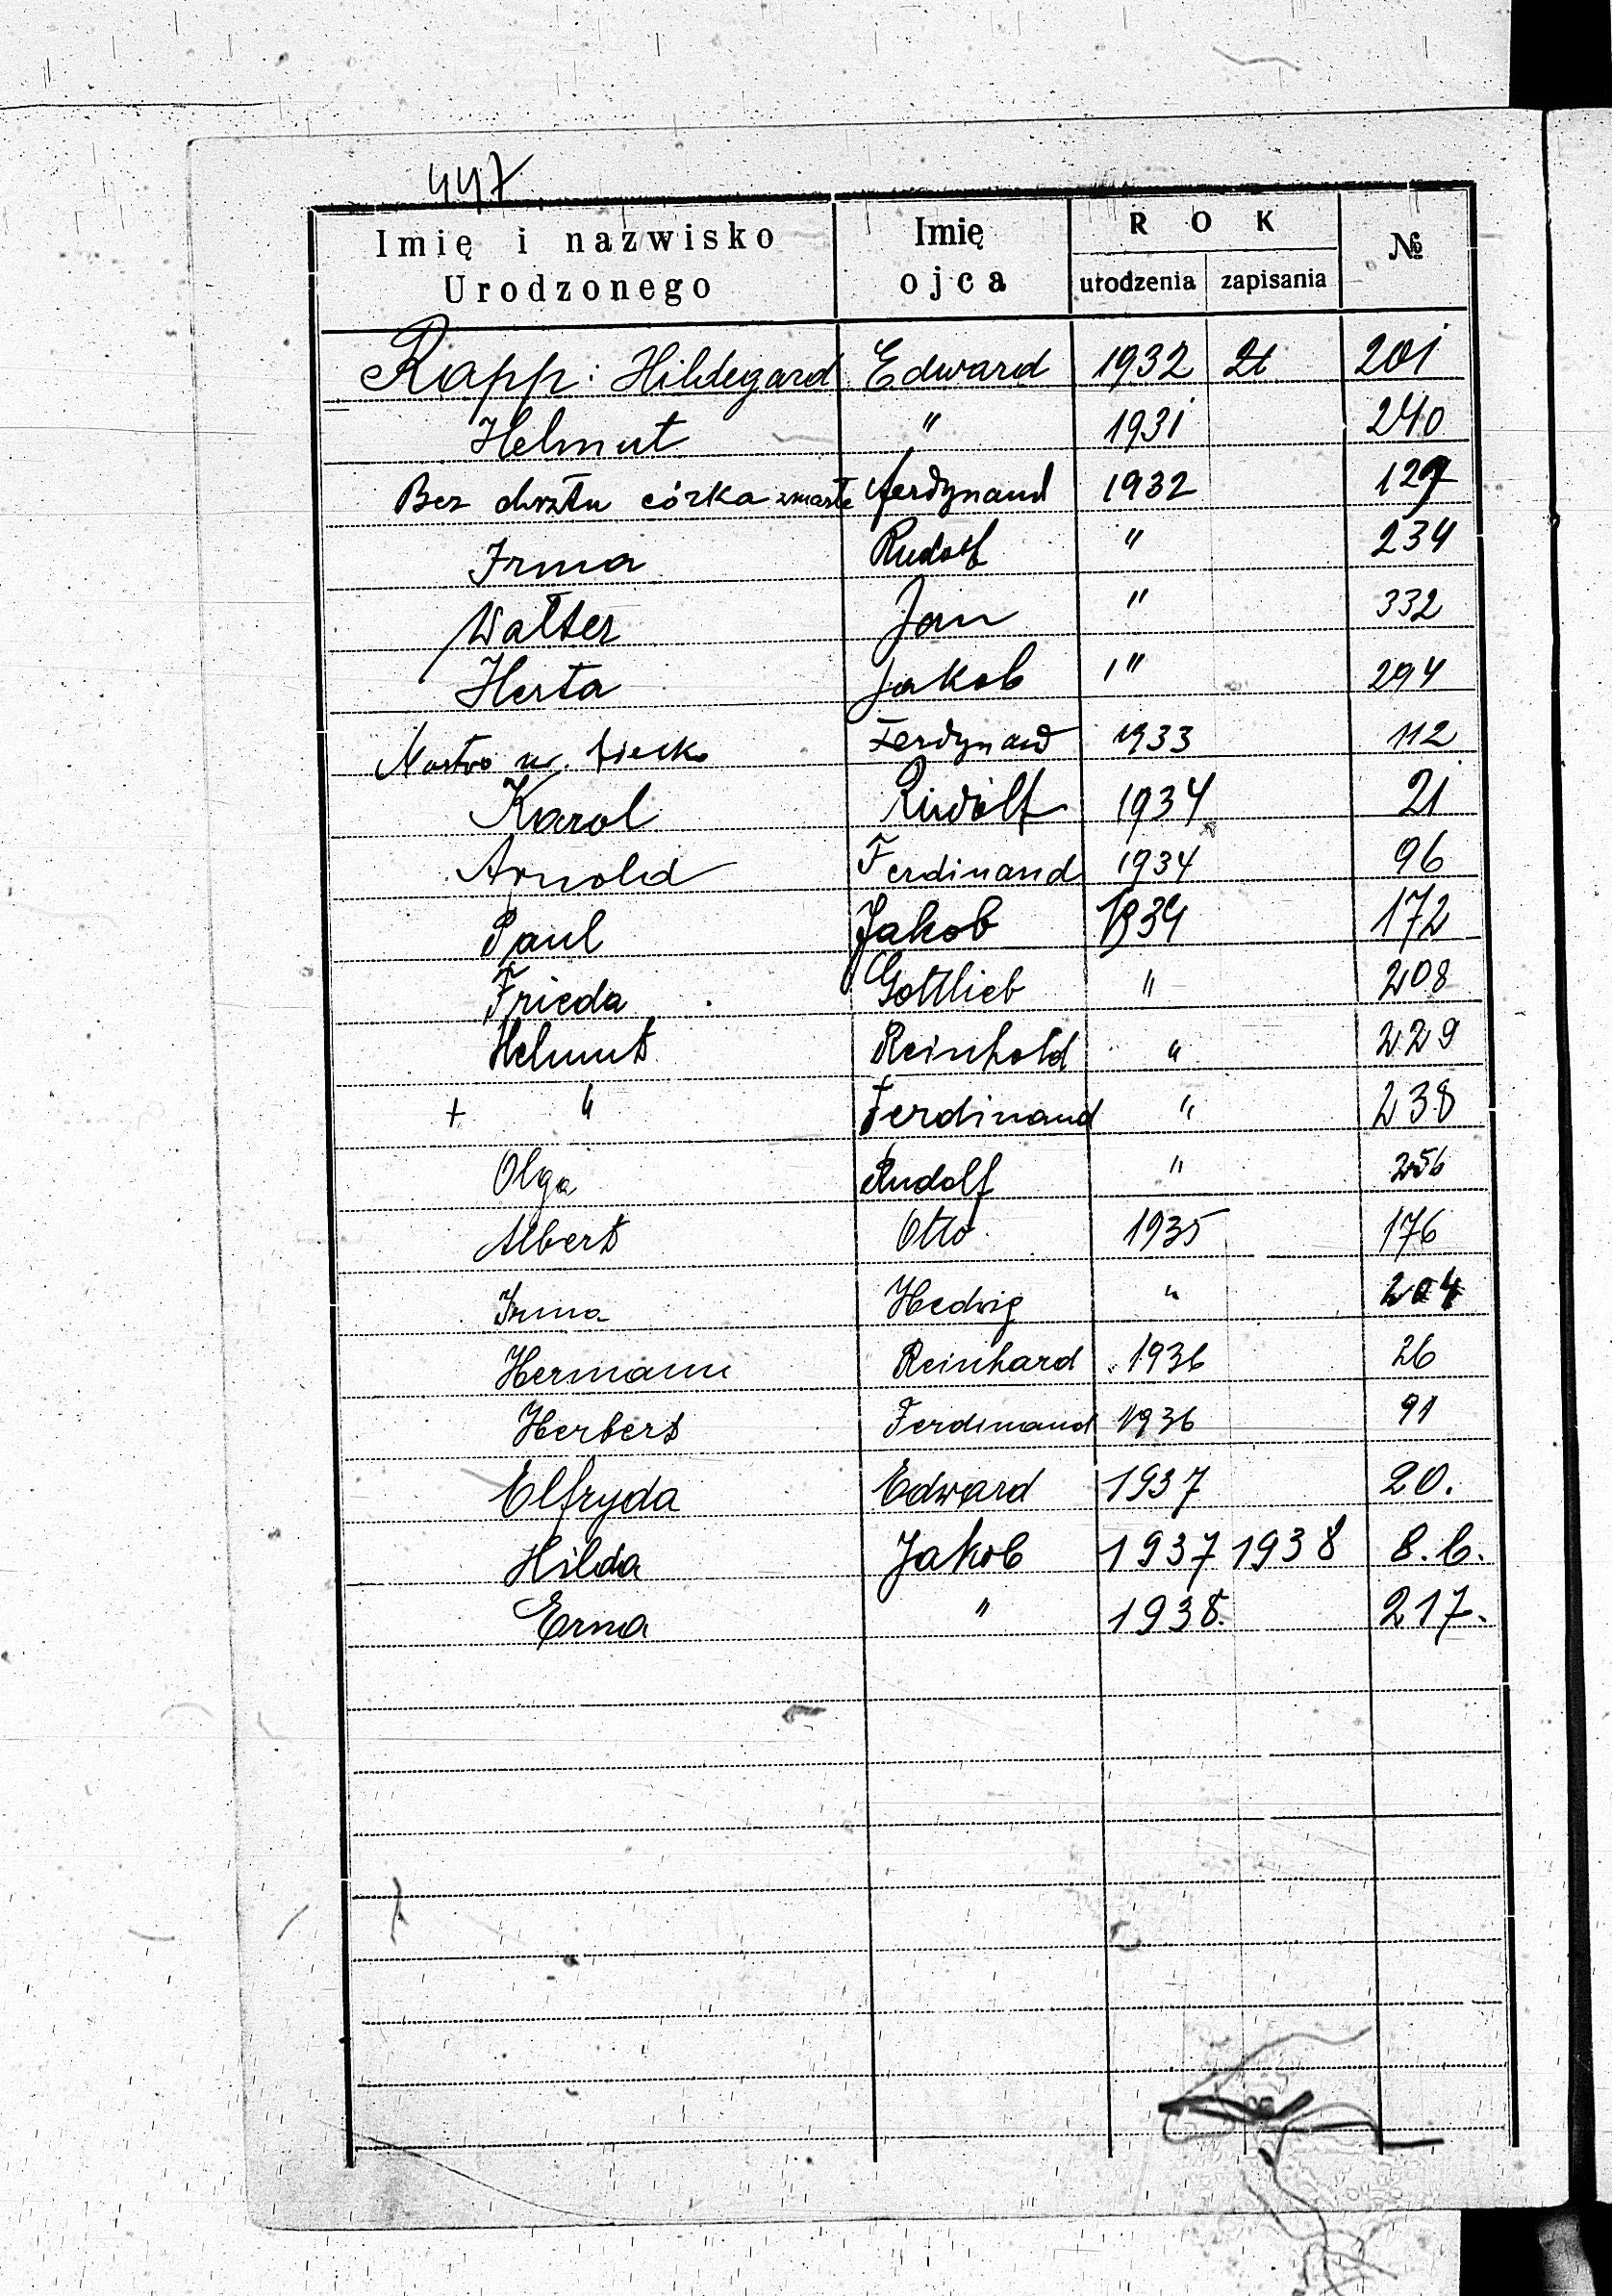 447
Imię i nazwisko Urodzonego Imię ojca ROK urodzenia zapisania №
Rapp: Hildegard Edward 1932 201
Helmut " 1931 240
Bez chrztu córka zmarła Ferdynand 1932 127
Irma Rudolf " 234
Walter Jan " 332
Herta Jakob " 294
ur. Ferdynand 1933 112
Karol Rudolf 1934 21
Arnold Ferdinand 1934 96
Paul Jakob 1934 172
Frieda Gottlieb " 208
Helmut Reinhold " 229
+ " Ferdinand " 238
Olga Rudolf " 256
Albert Otto 1935 176
Irma Hedwig " 204
Hermann Reinhard 1936 26
Herbert Ferdinand 1936 91
Elfryda Edward 1937 20.
Hilda Jakob 1937 1938 8.b.
Erna " 1938. 217.